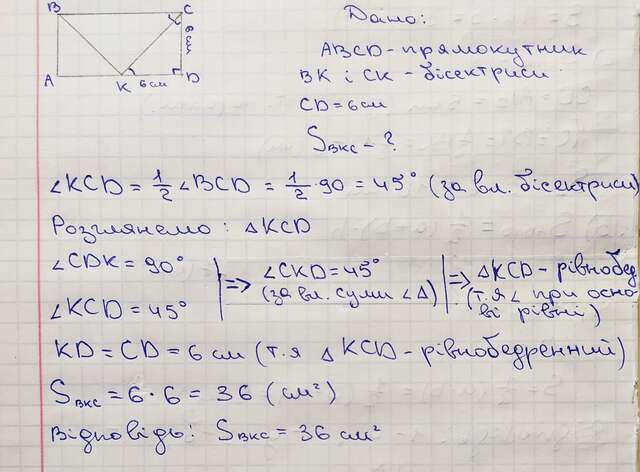 B
C
6 см
A
K
6 см
D
Дано:
ABCD - прямокутник
BK і CK - бісектриси
CD = 6 см
Sвкс - ?
∠KCD = 1/2 ∠BCD = 1/2 · 90 = 45° (за вл. бісектриси)
Розглянемо: △KCD
∠CDK = 90°
∠KCD = 45°
=> ∠CKD = 45°
(за вл. суми ∠△)
=> △KCD - рівнобед
(т.я ∠ при осно
ві рівні)
KD = CD = 6 см (т.я △ KCD - рівнобедренний)
Sвкс = 6 · 6 = 36 (см²)
Відповідь: Sвкс = 36 см²